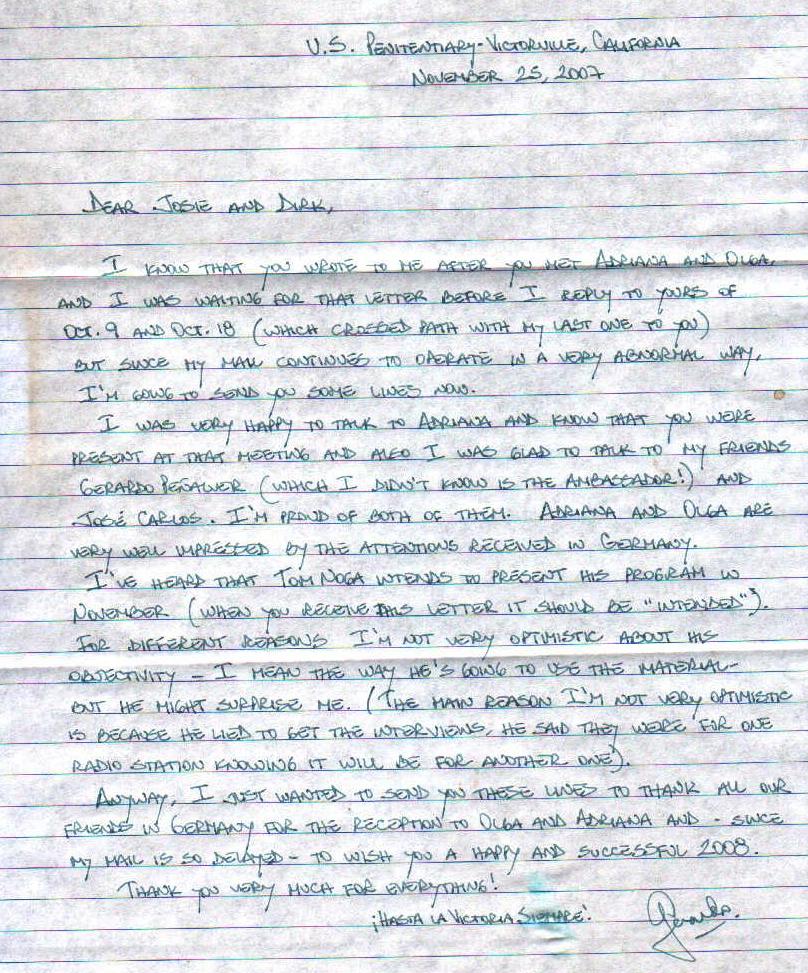 U.S. PENITENTIARY-VICTORVILLE, CALIFORNIA
NOVEMBER 25, 2007
DEAR JOSIE AND DIRK,
I KNOW THAT YOU WROTE TO ME AFTER YOU MET ADRIANA AND OLGA,
AND I WAS WAITING FOR THAT LETTER BEFORE I REPLY TO YOURS OF
OCT. 9 AND OCT. 18 (WHICH CROSSED PATH WITH MY LAST ONE TO YOU)
BUT SINCE MY MAIL CONTINUES TO OPERATE IN A VERY ABNORMAL WAY,
I'M GOING TO SEND YOU SOME LINES NOW.
I WAS VERY HAPPY TO TALK TO ADRIANA AND KNOW THAT YOU WERE
PRESENT AT THAT MEETING AND ALSO I WAS GLAD TO TALK TO MY FRIENDS
GERARDO PEÑALVER (WHICH I DIDN'T KNOW IS THE AMBASSADOR!) AND
JOSÉ CARLOS. I'M PROUD OF BOTH OF THEM. ADRIANA AND OLGA ARE
VERY WELL IMPRESSED BY THE ATTENTIONS RECEIVED IN GERMANY.
I'VE HEARD THAT TOM NOGA INTENDS TO PRESENT HIS PROGRAM IN
NOVEMBER (WHEN YOU RECEIVE THIS LETTER IT SHOULD BE "INTENDED").
FOR DIFFERENT REASONS I'M NOT VERY OPTIMISTIC ABOUT HIS
OBJECTIVITY - I MEAN THE WAY HE'S GOING TO USE THE MATERIAL-
BUT HE MIGHT SURPRISE ME. (THE MAIN REASON I'M NOT VERY OPTIMISTIC
IS BECAUSE HE LIED TO GET THE INTERVIEWS, HE SAID THEY WERE FOR ONE
RADIO STATION KNOWING IT WILL BE FOR ANOTHER ONE).
ANYWAY, I JUST WANTED TO SEND YOU THESE LINES TO THANK ALL OUR
FRIENDS IN GERMANY FOR THE RECEPTION TO OLGA AND ADRIANA AND - SINCE
MY MAIL IS SO DELAYED - TO WISH YOU A HAPPY AND SUCCESSFUL 2008.
THANK YOU VERY MUCH FOR EVERYTHING!
¡HASTA LA VICTORIA SIEMPRE! Gerardo.